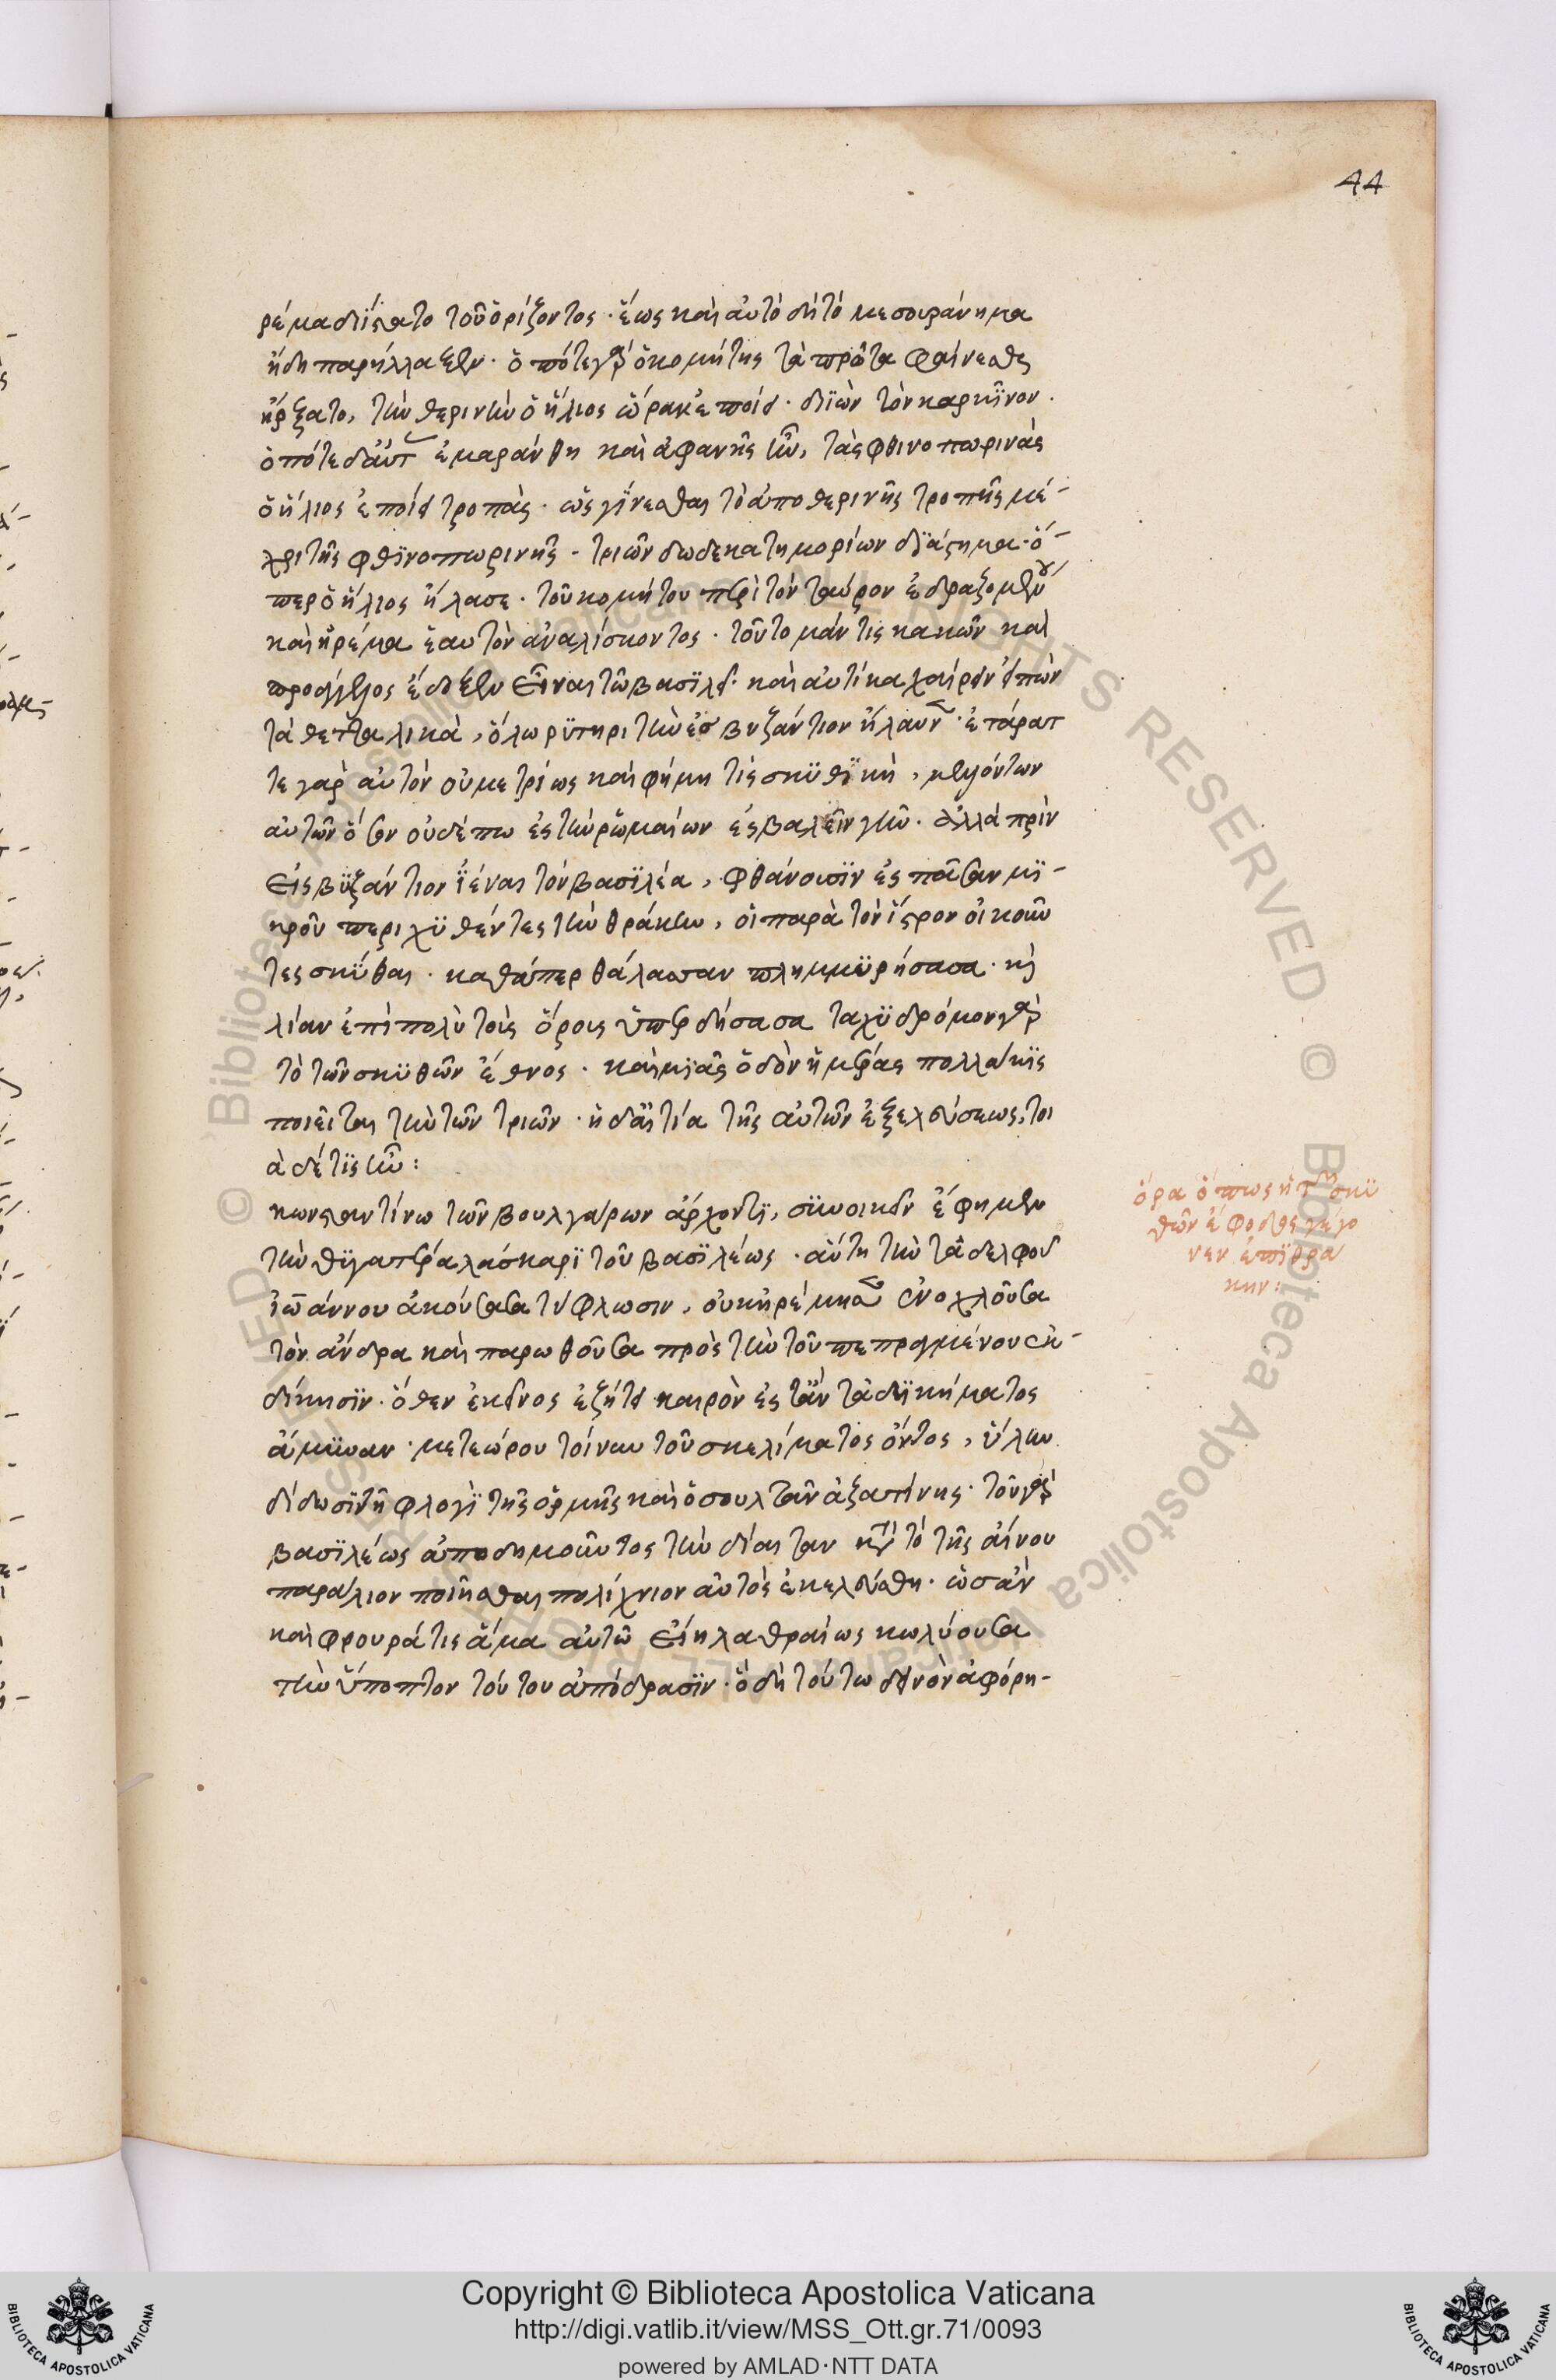 44
ρέμα διΐστατο τοῦ ὁρίζοντος· ἕως καὶ αὐτὸ δὴ τὸ μεσουράνημα
ἤδη παρήλλαξεν· ὁπότε γὰρ ὁ κομήτης τὰ πρῶτα φαίνεσθαι
ἤρξατο, τὴν θερινὴν ὁ ἥλιος ἐποίει· διϊὼν τὸν καρκῖνον·
ὁπότε δ' αὖτ ἐμαράνθη καὶ ἀφανὴς ἦν, τὰς φθινοπωρινὰς
ὁ ἥλιος ἐποίει τροπὰς· ὡς γίνεσθαι τὸ ἀπο θερινῆς τροπῆς μέ-
χρι τῆς φθϊνοπωρινῆς· τριῶν δωδεκατημορίων διάστημα· ὅ-
περ ὁ ἥλιος ἤλασε· τοῦ κομήτου περὶ τὸν ταῦρον ἐδραζομένου
καὶ ἠρέμα ἑαυτὸν ἀναλίσκοντος· τοῦτο μάντις κακῶν καὶ
προάγγελος ἔδοξεν εἶναι τῶ βασϊλεῖ· καὶ αὐτίκα χαίρειν εἰπὼν
τὰ θετταλικὰ, ὅλω ῥυτῆρι τὴν ἐσ βυζάντιον ἤλαυν· ἐτάρατ
τε γὰρ αὐτὸν οὐ μετρίως καὶ φήμη τίς σκϋθϊκὴ, μελλόντων
αὐτῶν ὅσον οὐδέπω ἐς τὴν ῥωμαίων ἐσβαλεῖν γῆν· ἀλλὰ πρὶν
εἰς βϋζάντιον ἰέναι τὸν βασϊλέα, φθάνουσϊν ἐς πᾶσαν μϊ-
κροῦ περιχϋθέντες τὴν θράκην, οἱ παρὰ τὸν ἴστρον οἰκοῦν
τες σκΰθαι· καθάπερ θάλασσα πλημμϋρήσασα· καὶ
λίαν ἐπὶ πολὺ τοὺς ὅρους ὑπερπηδήσασα ταχϋδρόμον γὰρ
τὸ τῶν σκϋθῶν ἔθνος· καὶ μϊᾶς ὁδὸν ἡμέρας πολλάκϊς
ποιεῖται τὴν τῶν τριῶν· ἡ δ' αἰτία τῆς αὐτῶν ἐξελεύσεως, τοι
ὰ δέ τις ἦν:
κωνσταντίνω τῶν βουλγάρων ἄρχοντϊ, σϋνοικεῖν ἔφημεν
τὴν θϋγατέρα λάσκαρϊ τοῦ βασϊλέως· αὕτη τὴν τἀδελφοῦ
ἰωάννου ἀκούσασα τύφλωσιν, οὐκ ἠρέμησεν ἐνοχλοῦσα
τὸν ἄνδρα καὶ παρωθοῦσα πρὸς τὴν τοῦ πεπραγμένου ἐκ-
δίκησϊν· ὅθεν ἐκεῖνος ἐζήτει καιρὸν ἐς τὴν τἀδϊκήματος
ἄμϋναν· μετεώρου τοίνυν τοῦ σκελίματος ὄντος, ὕλην
δίδωσϊ τῆ φλογὶ τῆς ὁρμῆς καὶ ὁ σουλτὰν ἀζατίνης· τοῦ γὰρ
βασϊλέως ἀποδημοῦντος τὴν δίαιταν κατὰ τὸ τῆς αἴνου
παράλιον ποιῆσθαι πολίχνιον αὐτὸς ἐκελεύσθη· ὡσὰν
καὶ φρουρά τις ἅμα αὐτῶ εἴη λαθραίως κωλύουσα
τὴν ὕποπτον τούτου ἀπόδρασϊν· ὃ δὴ τούτω δεινὸν ἀφόρη-
ὅρα ὅπως ἡ τῶν σκϋ
θῶν ἔφοδος γέγο
νεν ἐπϊ θρά
κην:
Copyright © Biblioteca Apostolica Vaticana
http://digi.vatlib.it/view/MSS_Ott.gr.71/0093
powered by AMLAD·NTT DATA